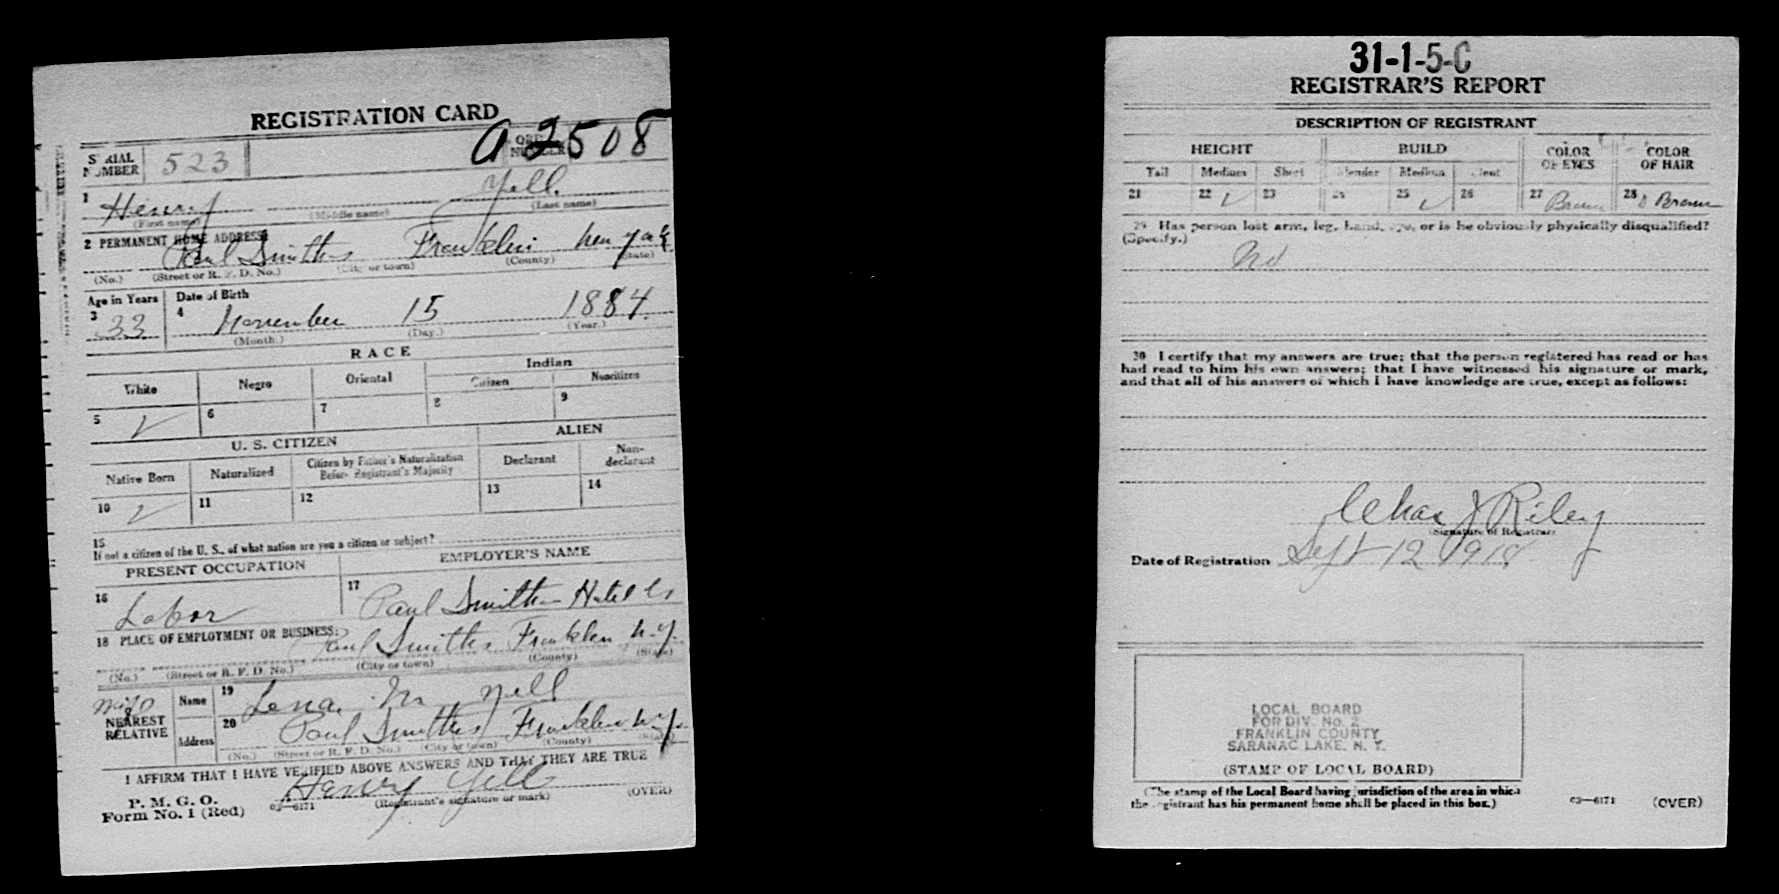 REGISTRATION CARD
SERIAL NUMBER 523 ORDER NUMBER A2508
1 Henry Yell
(First name) (Middle name) (Last name)
2 PERMANENT HOME ADDRESS:
Paul Smiths Franklin New York
(No.) (Street or R. F. D. No.) (City or town) (County) (State)
Age in Years Date of Birth
3 33 4 November 15 1884
(Month.) (Day.) (Year.)
RACE
White Negro Oriental Indian
Citizen Noncitizen
5 ✓ 6 7 8 9
U. S. CITIZEN ALIEN
Native Born Naturalized Citizen by Father's Naturalization Before Registrant's Majority Declarant Non-declarant
10 ✓ 11 12 13 14
15
If not a citizen of the U. S., of what nation are you a citizen or subject?
PRESENT OCCUPATION EMPLOYER'S NAME
16 Labor 17 Paul Smiths Hotel Co
18 PLACE OF EMPLOYMENT OR BUSINESS:
Paul Smiths Franklin N.Y.
(No.) (Street or R. F. D. No.) (City or town) (County) (State)
NEAREST RELATIVE Name 19 Lena M Yell
Address 20 Paul Smiths Franklin N.Y.
(No.) (Street or R. F. D. No.) (City or town) (County) (State)
I AFFIRM THAT I HAVE VERIFIED ABOVE ANSWERS AND THAT THEY ARE TRUE
P. M. G. O.
Form No. 1 (Red) 03—6171 Henry Yell
(Registrant's signature or mark) (OVER)
31-1-5-C
REGISTRAR'S REPORT
DESCRIPTION OF REGISTRANT
HEIGHT BUILD COLOR OF EYES COLOR OF HAIR
Tall Medium Short Slender Medium Stout
21 22 ✓ 23 24 25 ✓ 26 27 Brown 28 Brown
29 Has person lost arm, leg, hand, eye, or is he obviously physically disqualified?
(Specify.)
No
30 I certify that my answers are true; that the person registered has read or has
had read to him his own answers; that I have witnessed his signature or mark,
and that all of his answers of which I have knowledge are true, except as follows:
Chas J Riley
Signature of Registrar
Date of Registration Sept 12 1918
LOCAL BOARD
FOR DIV. No. 2
FRANKLIN COUNTY
SARANAC LAKE, N. Y.
(STAMP OF LOCAL BOARD)
(The stamp of the Local Board having jurisdiction of the area in which
the registrant has his permanent home shall be placed in this box.)
03—6171 (OVER)